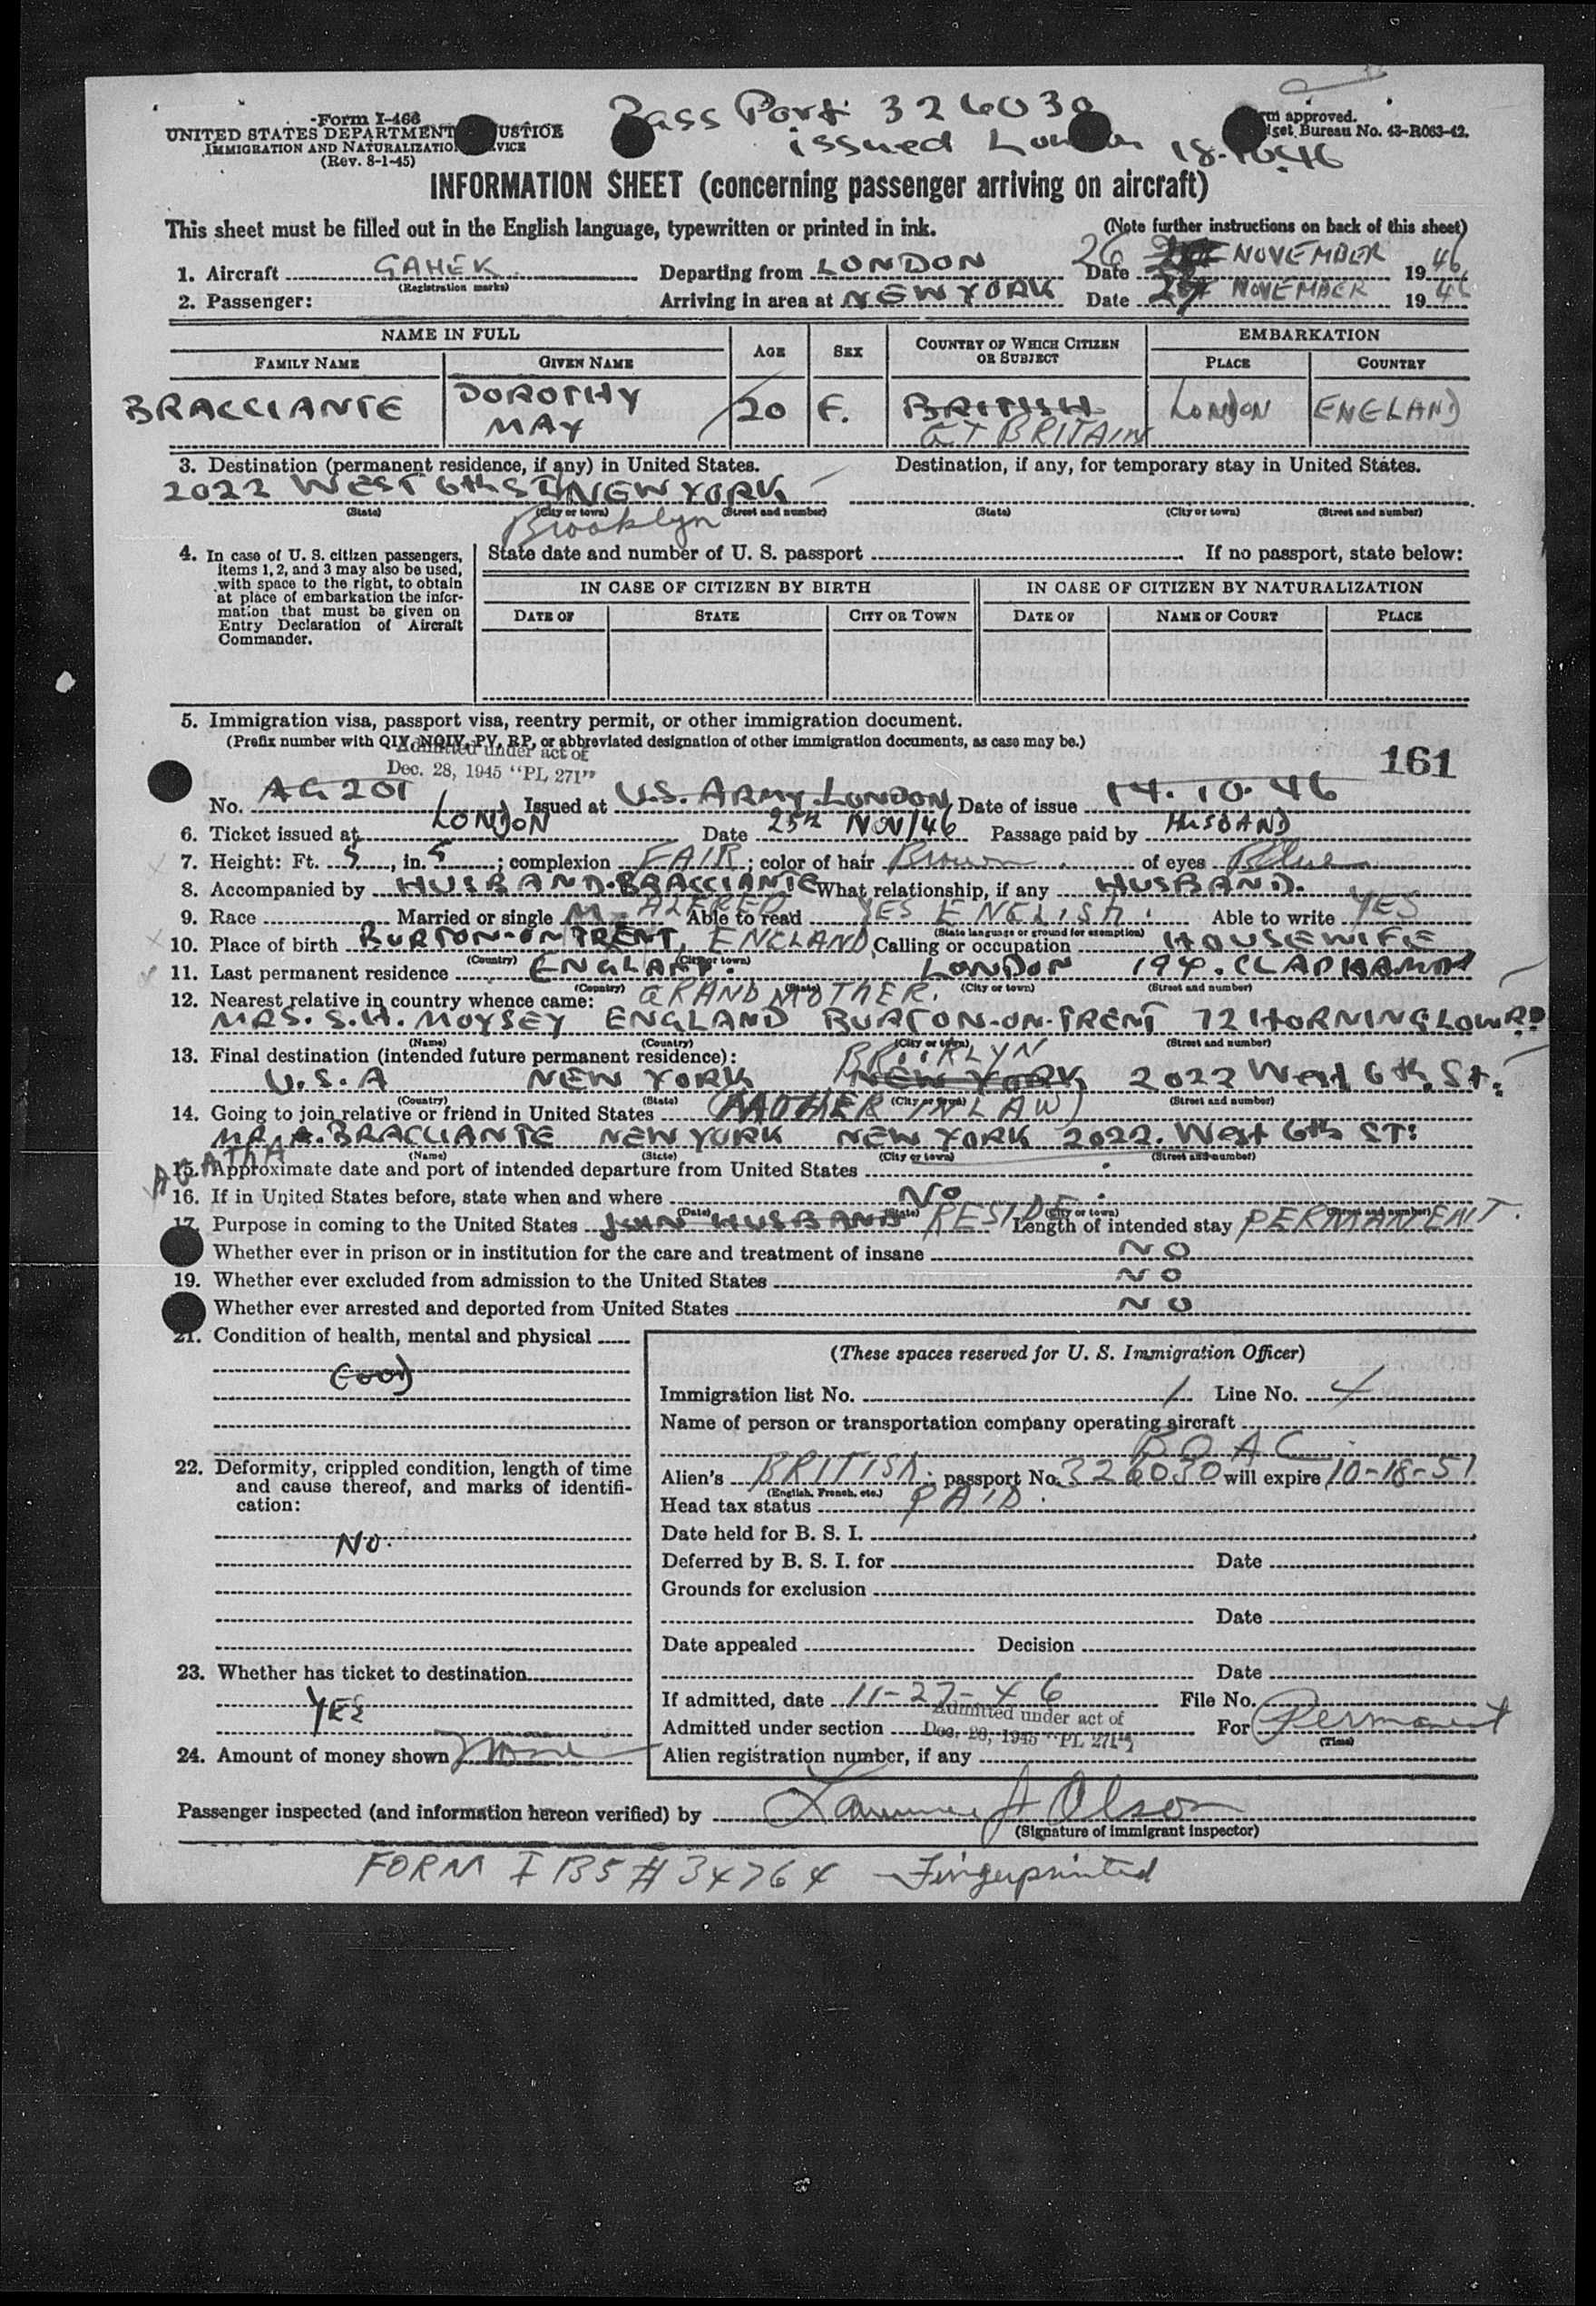 Form I-466
UNITED STATES DEPARTMENT USTICE
IMMIGRATION AND NATURALIZATIO VICE
(Rev. 8-1-45)
Pass Port. 326030
issued London 18.10.46
rm approved.
get Bureau No. 43-R063-42.
INFORMATION SHEET (concerning passenger arriving on aircraft)
This sheet must be filled out in the English language, typewritten or printed in ink. (Note further instructions on back of this sheet)
1. Aircraft GAHEK Departing from LONDON Date 26 NOVEMBER 1946
(Registration marks)
2. Passenger: Arriving in area at NEW YORK Date 27 NOVEMBER 1946
NAME IN FULL AGE SEX COUNTRY OF WHICH CITIZEN OR SUBJECT EMBARKATION
FAMILY NAME GIVEN NAME PLACE COUNTRY
BRACCIANTE DOROTHY MAY 20 F. BRITISH GT BRITAIN LONDON ENGLAND
3. Destination (permanent residence, if any) in United States. Destination, if any, for temporary stay in United States.
2022 WEST 6th ST NEW YORK
(State) (City or town) (Street and number) (State) (City or town) (Street and number)
Brooklyn
4. In case of U. S. citizen passengers, items 1, 2, and 3 may also be used, with space to the right, to obtain at place of embarkation the information that must be given on Entry Declaration of Aircraft Commander.
State date and number of U. S. passport If no passport, state below:
IN CASE OF CITIZEN BY BIRTH IN CASE OF CITIZEN BY NATURALIZATION
DATE OF STATE CITY OR TOWN DATE OF NAME OF COURT PLACE
5. Immigration visa, passport visa, reentry permit, or other immigration document.
(Prefix number with QIV, NQIV, PV, RP, or abbreviated designation of other immigration documents, as case may be.)
Admitted under act of
Dec. 28, 1945 "PL 271"
161
No. AG 201 Issued at U.S. ARMY LONDON Date of issue 14.10.46
6. Ticket issued at LONDON Date 25th NOV/46 Passage paid by HUSBAND
7. Height: Ft. 5, in. 5; complexion FAIR; color of hair Brown of eyes Blue
8. Accompanied by HUSBAND. BRACCIANTE What relationship, if any HUSBAND.
ALFRED
9. Race Married or single M Able to read YES ENGLISH. Able to write YES
(State language or ground for exemption)
10. Place of birth BURTON-ON TRENT, ENGLAND Calling or occupation HOUSEWIFE
(Country) (City or town)
11. Last permanent residence ENGLAND. LONDON 194. CLAPHAM
(Country) (State) (City or town) (Street and number)
12. Nearest relative in country whence came: GRANDMOTHER.
MRS. S.H. MOYSEY ENGLAND BURTON-ON-TRENT 72 HORNINGLOW RD
(Name) (Country) (City or town) (Street and number)
13. Final destination (intended future permanent residence): BROOKLYN
U.S.A NEW YORK NEW YORK 2022 West 6th. St.
(Country) (State) (City or town) (Street and number)
14. Going to join relative or friend in United States (MOTHER IN LAW)
MR. A. BRACCIANTE NEW YORK NEW YORK 2022. West 6th ST:
(Name) (State) (City or town) (Street and number)
AGATHA
15. Approximate date and port of intended departure from United States
16. If in United States before, state when and where No
(Date) (State) (City or town) (Street and number)
17. Purpose in coming to the United States JOIN HUSBAND RESIDE Length of intended stay PERMANENT.
Whether ever in prison or in institution for the care and treatment of insane NO
19. Whether ever excluded from admission to the United States NO
Whether ever arrested and deported from United States NO
21. Condition of health, mental and physical
Good
22. Deformity, crippled condition, length of time and cause thereof, and marks of identification:
No.
23. Whether has ticket to destination
YES
24. Amount of money shown None
(These spaces reserved for U. S. Immigration Officer)
Immigration list No. 1 Line No. 4
Name of person or transportation company operating aircraft
BOAC
Alien's BRITISH passport No. 326030 will expire 10-18-51
(English, French, etc.)
Head tax status PAID.
Date held for B. S. I.
Deferred by B. S. I. for Date
Grounds for exclusion
Date
Date appealed Decision
Date
If admitted, date 11-27-46 File No.
Admitted under act of
Admitted under section Dec. 28, 1945 "PL 271" For Permanent
(Time)
Alien registration number, if any
Passenger inspected (and information hereon verified) by Lawrence A Olson
(Signature of immigrant inspector)
FORM I 135 # 34764 - Fingerprinted